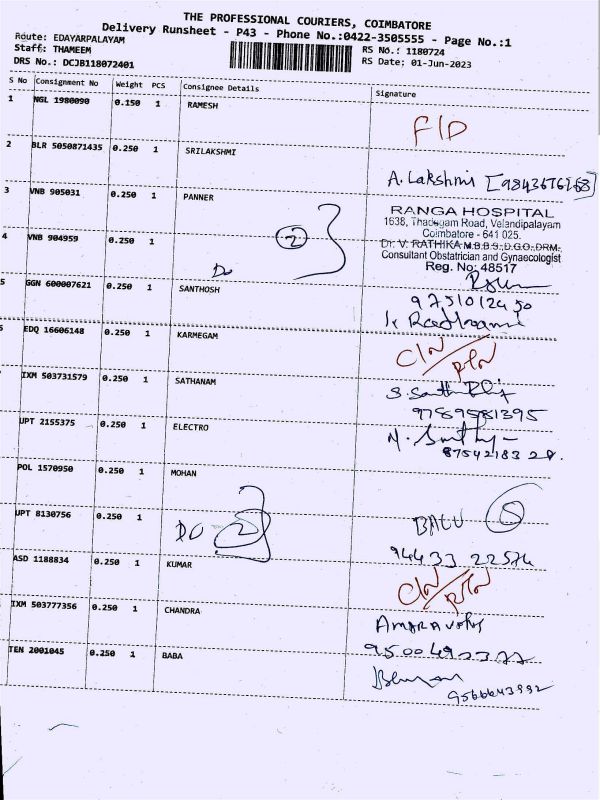 THE PROFESSIONAL COURIERS, COIMBATORE
Delivery Runsheet - P43 - Phone No.:0422-3505555 - Page No.:1
Route: EDAYARPALAYAM
Staff: THAMEEM RS No.: 1180724
DRS No.: DCJB118072401 RS Date: 01-Jun-2023
S No Consignment No Weight PCS Consignee Details Signature
1 NGL 1980090 0.150 1 RAMESH
F/D
2 BLR 5050871435 0.250 1 SRILAKSHMI
A. Lakshmi [9843676168]
3 VNB 905031 0.250 1 PANNER
RANGA HOSPITAL
1638, Thadagam Road, Velandipalayam
Coimbatore - 641 025.
4 VNB 904959 0.250 1 2
Dr. V. RATHIKA M.B.B.S.,D.G.O.,DRM.,
Consultant Obstatrician and Gynaecologist
Reg. No: 48517
Do
5 GGN 600007621 0.250 1 SANTHOSH
9751012450
6 EDQ 16606148 0.250 1 KARMEGAM
C/N RTN
IXM 503731579 0.250 1 SATHANAM
9789581395
UPT 2155375 0.250 1 ELECTRO
POL 1570950 0.250 1 MOHAN
UPT 8130756 0.250 1 DO 2
BALU
94433 22574
ASD 1188834 0.250 1 KUMAR
C/N RTN
IXM 503777356 0.250 1 CHANDRA
TEN 2001045 0.250 1 BABA